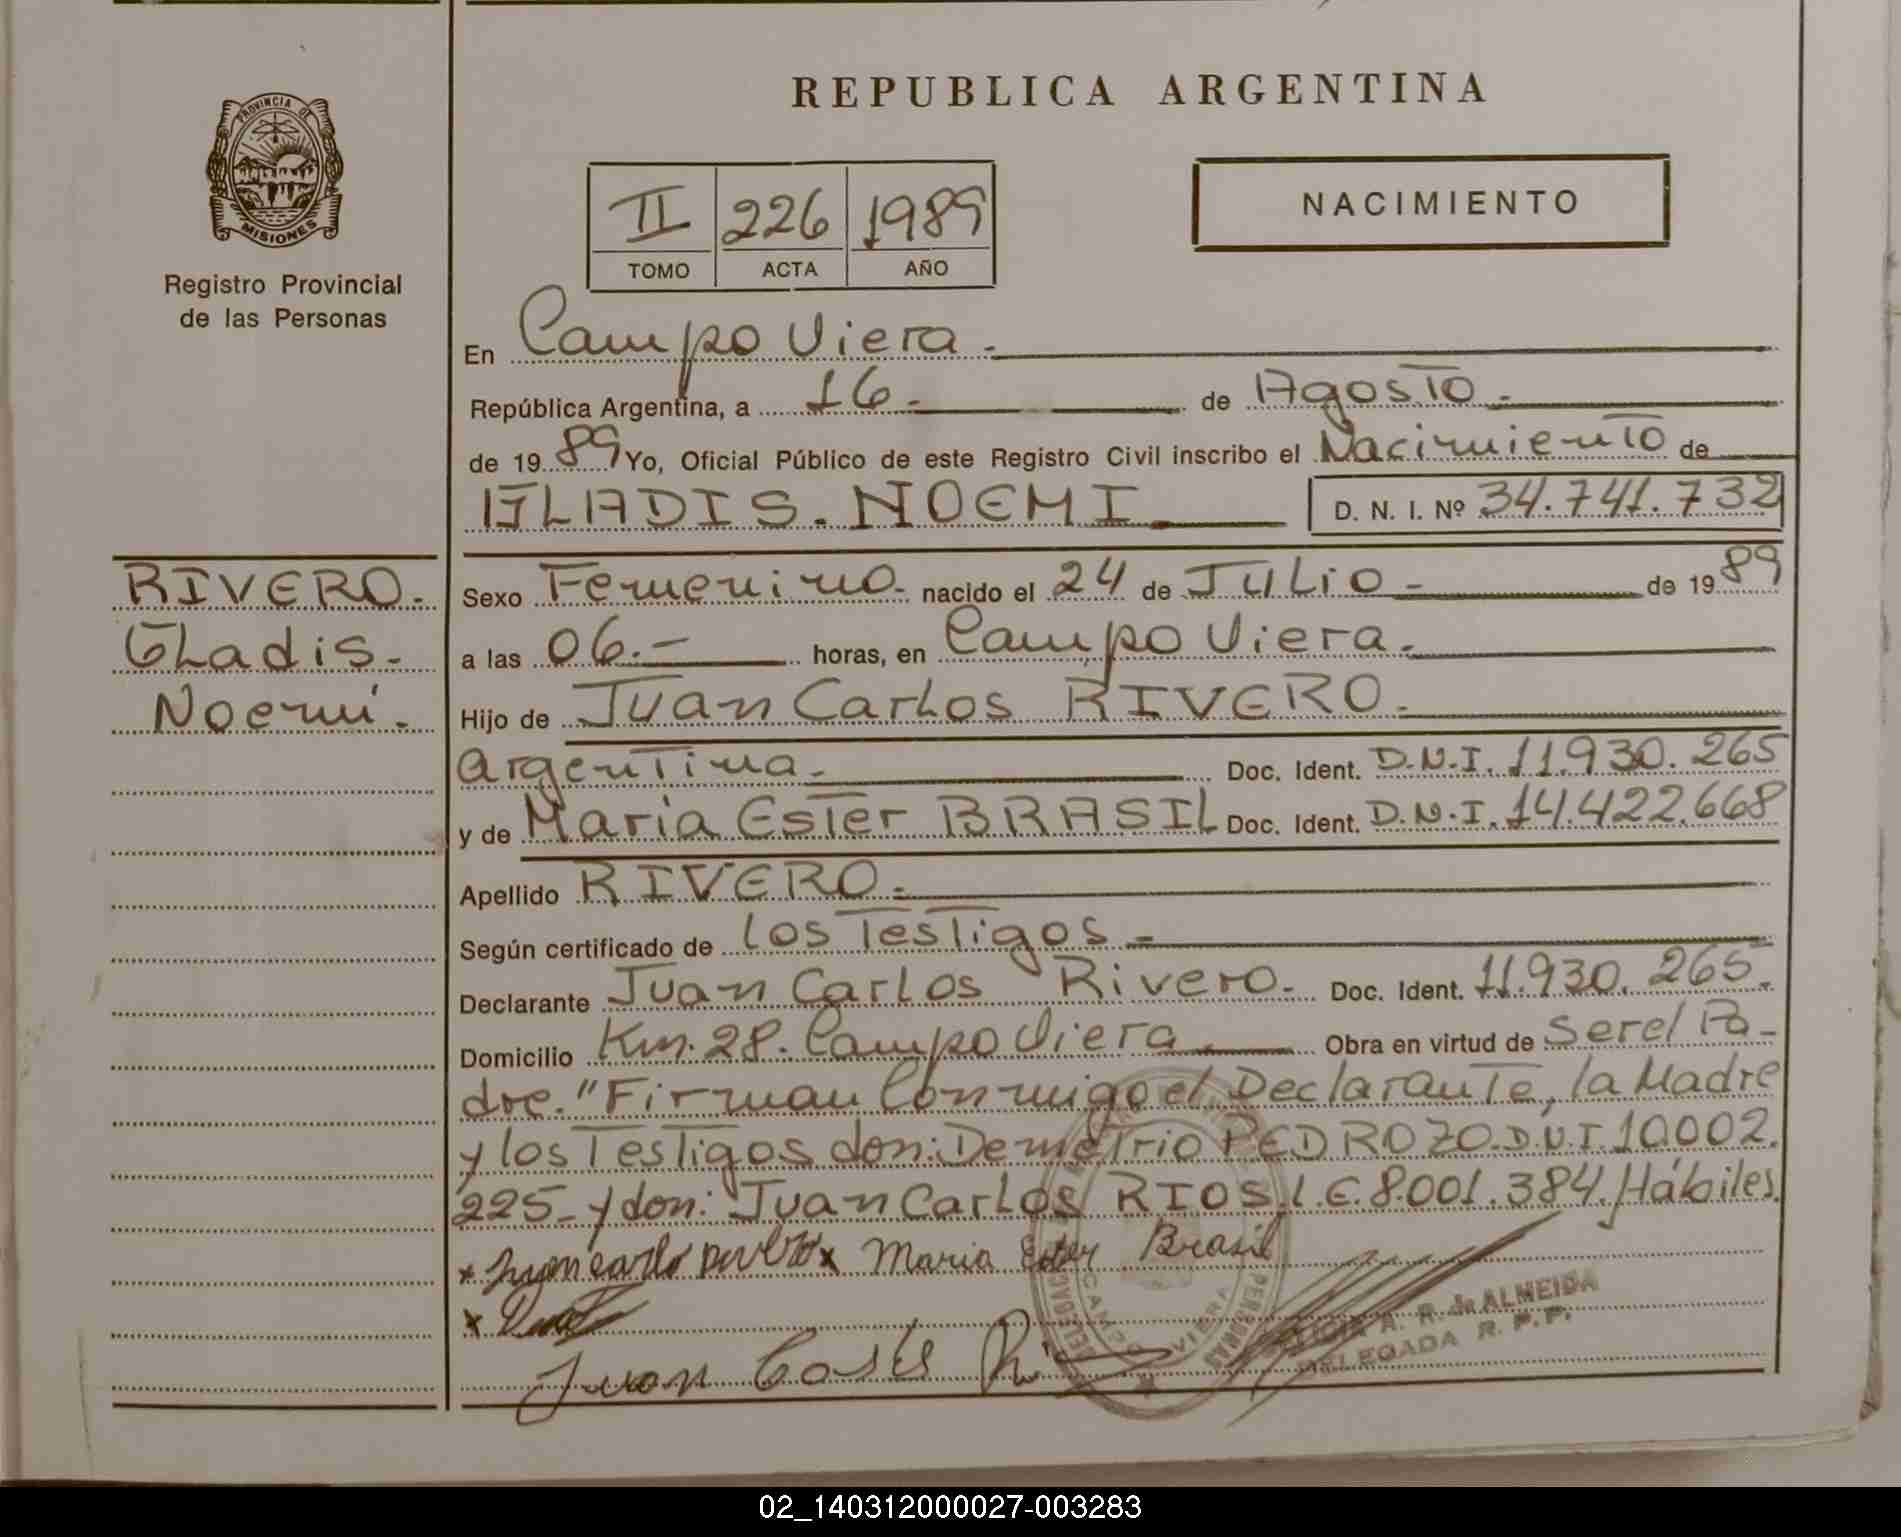 REPUBLICA ARGENTINA
PROVINCIA DE
MISIONES
Registro Provincial
de las Personas
II 226 1989
TOMO ACTA AÑO
NACIMIENTO
En Campo Viera.
República Argentina, a 16. de Agosto.
de 1989 Yo, Oficial Público de este Registro Civil inscribo el Nacimiento de
GLADIS. NOEMI. D. N. I. Nº 34.741.732
RIVERO.
Gladis.
Noemí.
Sexo Femenino. nacido el 24 de Julio - de 1989
a las 06.- horas, en Campo Viera.
Hijo de Juan Carlos RIVERO.
Argentina. Doc. Ident. D.N.I. 11.930.265
y de María Ester BRASIL Doc. Ident. D.N.I. 14.422.668
Apellido RIVERO.
Según certificado de los Testigos -
Declarante Juan Carlos Rivero. Doc. Ident. 11.930.265.
Domicilio Km. 28. Campo Viera. Obra en virtud de Ser el Pa-
dre. "Firman Conmigo el Declarante, la Madre
y los Testigos don: Demetrio PEDROZO. D.N.I. 10.002.
225- y don: Juan Carlos RIOS. L.E. 8.001.384. Hábiles.
x Juan carlo x Maria Ester Brasil
x
Juan
CAMPO VIERA
PERSONAS
A. R. de ALMEIDA
DELEGADA R. P. P.
02_140312000027-003283